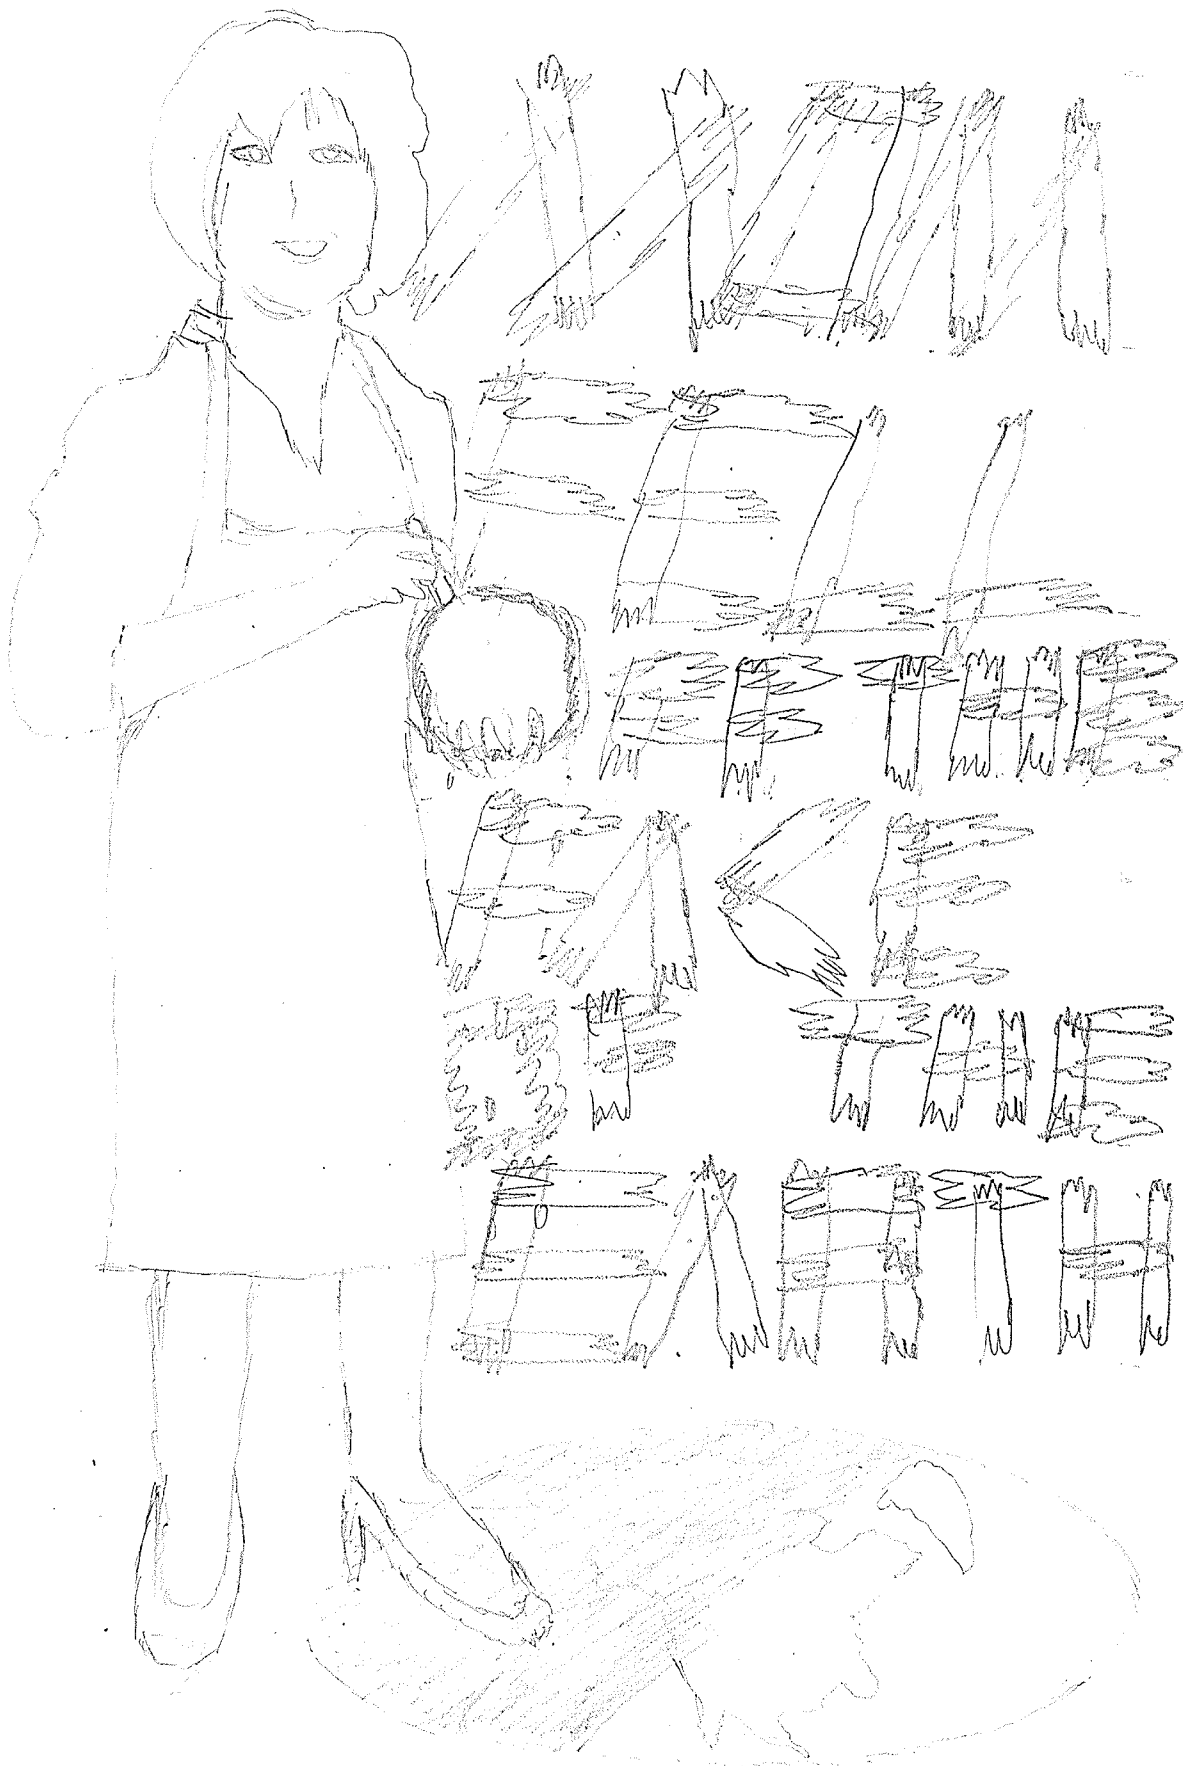 MOM
FELL
OFF THE
FACE
OF THE
EARTH